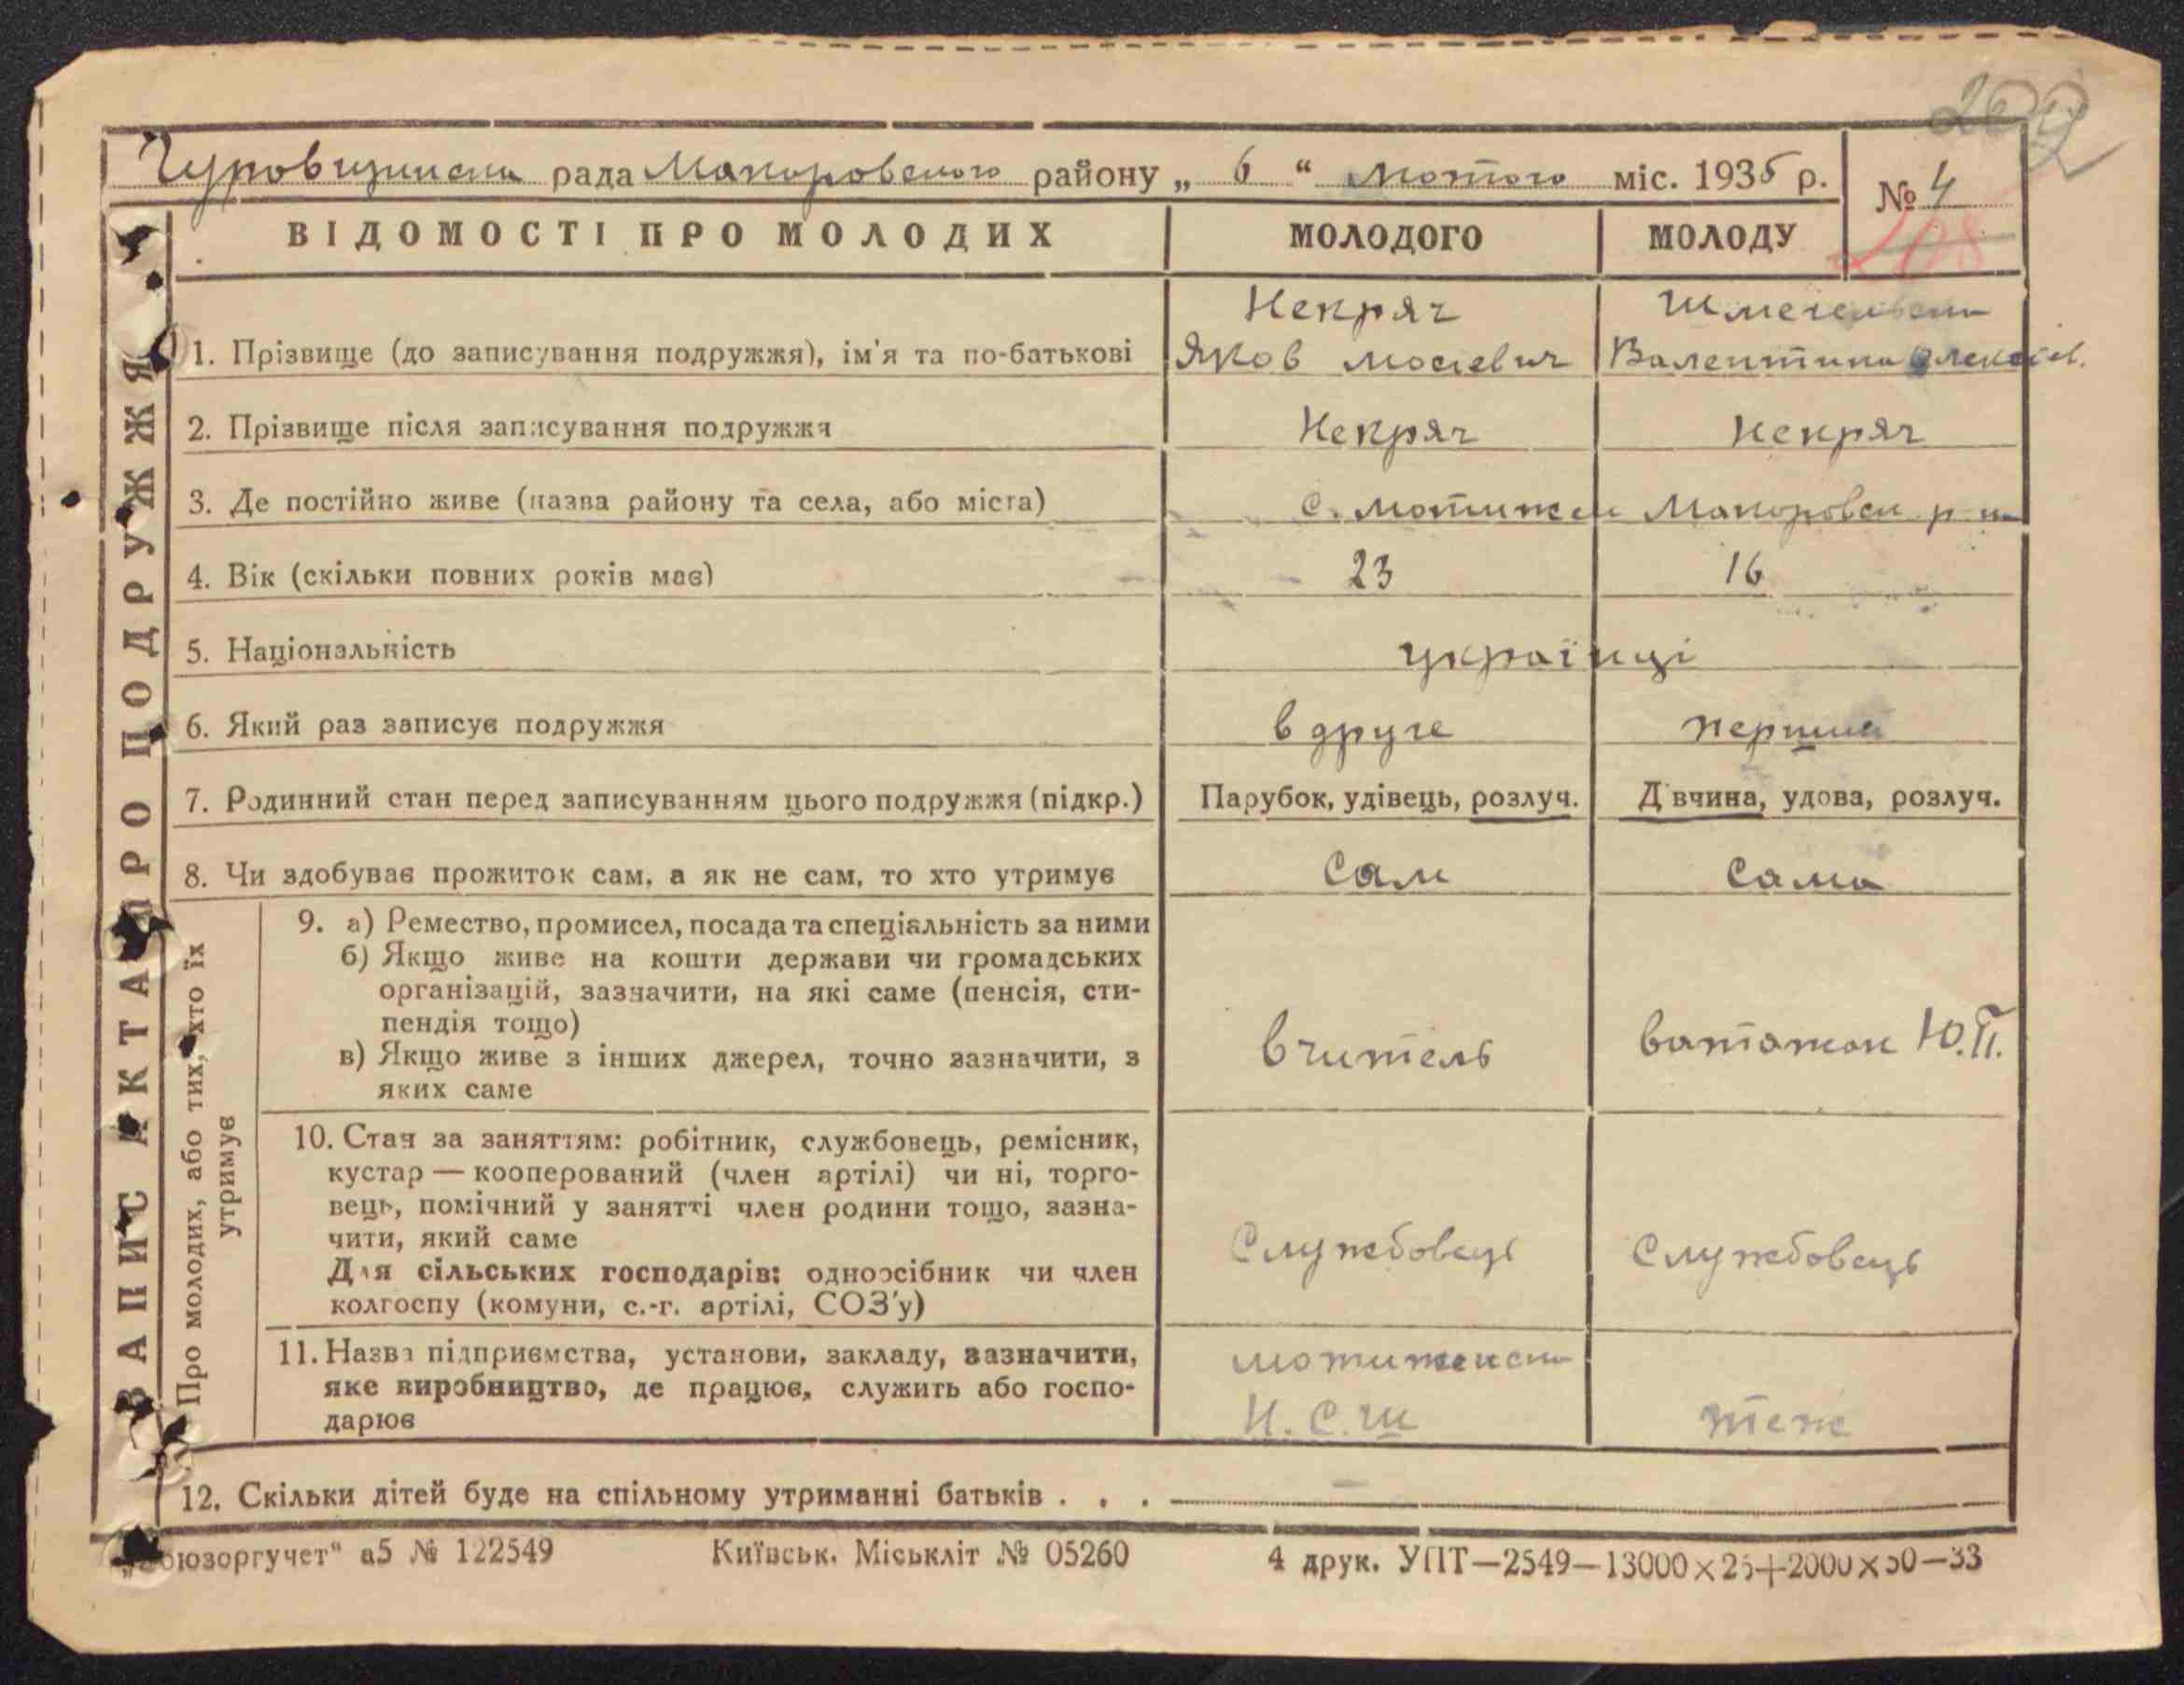 рада Макаровського району „ 6 “ лютого міс. 1935 р.
№ 4
ВІДОМОСТІ ПРО МОЛОДИХ
МОЛОДОГО
МОЛОДУ
ЗАПИС АКТА ПРО ПОДРУЖЖЯ
1. Прізвище (до записування подружжя), ім'я та по-батькові
Некряч
Яков Мосіевич
Валентина Олексіев.
2. Прізвище після записування подружжя
Некряч
Некряч
3. Де постійно живе (назва району та села, або міста)
с. Мотижен Макаровськ. р-н
4. Вік (скільки повних років має)
23
16
5. Національність
українці
6. Який раз записує подружжя
в друге
перший
7. Родинний стан перед записуванням цього подружжя (підкр.)
Парубок, удівець, розлуч.
Дівчина, удова, розлуч.
8. Чи здобуває прожиток сам, а як не сам, то хто утримує
Сам
Сама
Про молодих, або тих, хто їх
утримує
9. а) Ремество, промисел, посада та спеціяльність за ними
б) Якщо живе на кошти держави чи громадських
організацій, зазначити, на які саме (пенсія, сти-
пендія тощо)
в) Якщо живе з інших джерел, точно зазначити, з
яких саме
вчитель
ватажок Ю.П.
10. Стан за заняттям: робітник, службовець, ремісник,
кустар — кооперований (член артілі) чи ні, торго-
вець, помічний у занятті член родини тощо, зазна-
чити, який саме
Для сільських господарів: одноосібник чи член
колгоспу (комуни, с.-г. артілі, СОЗ'у)
Службовець
Службовець
11. Назва підприємства, установи, закладу, зазначити,
яке виробництво, де працює, служить або госпо-
дарює
Мотиженська
Н.С.Ш
теж
12. Скільки дітей буде на спільному утриманні батьків . . .
„Союзоргучет“ а5 № 122549
Київськ. Міськліт № 05260
4 друк. УПТ—2549—13000×25+2000×50—33